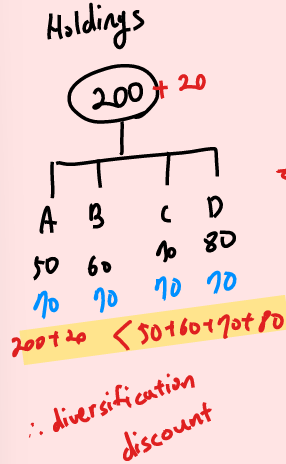 Holdings
200 + 20
A B C D
50 60 70 80
70 70 70 70
200+20 < 50+60+70+80
∴ diversification
discount